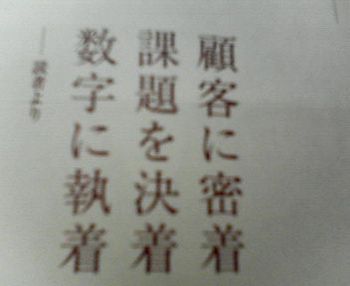 顧客に密着
課題を決着
数字に執着
── 読者より